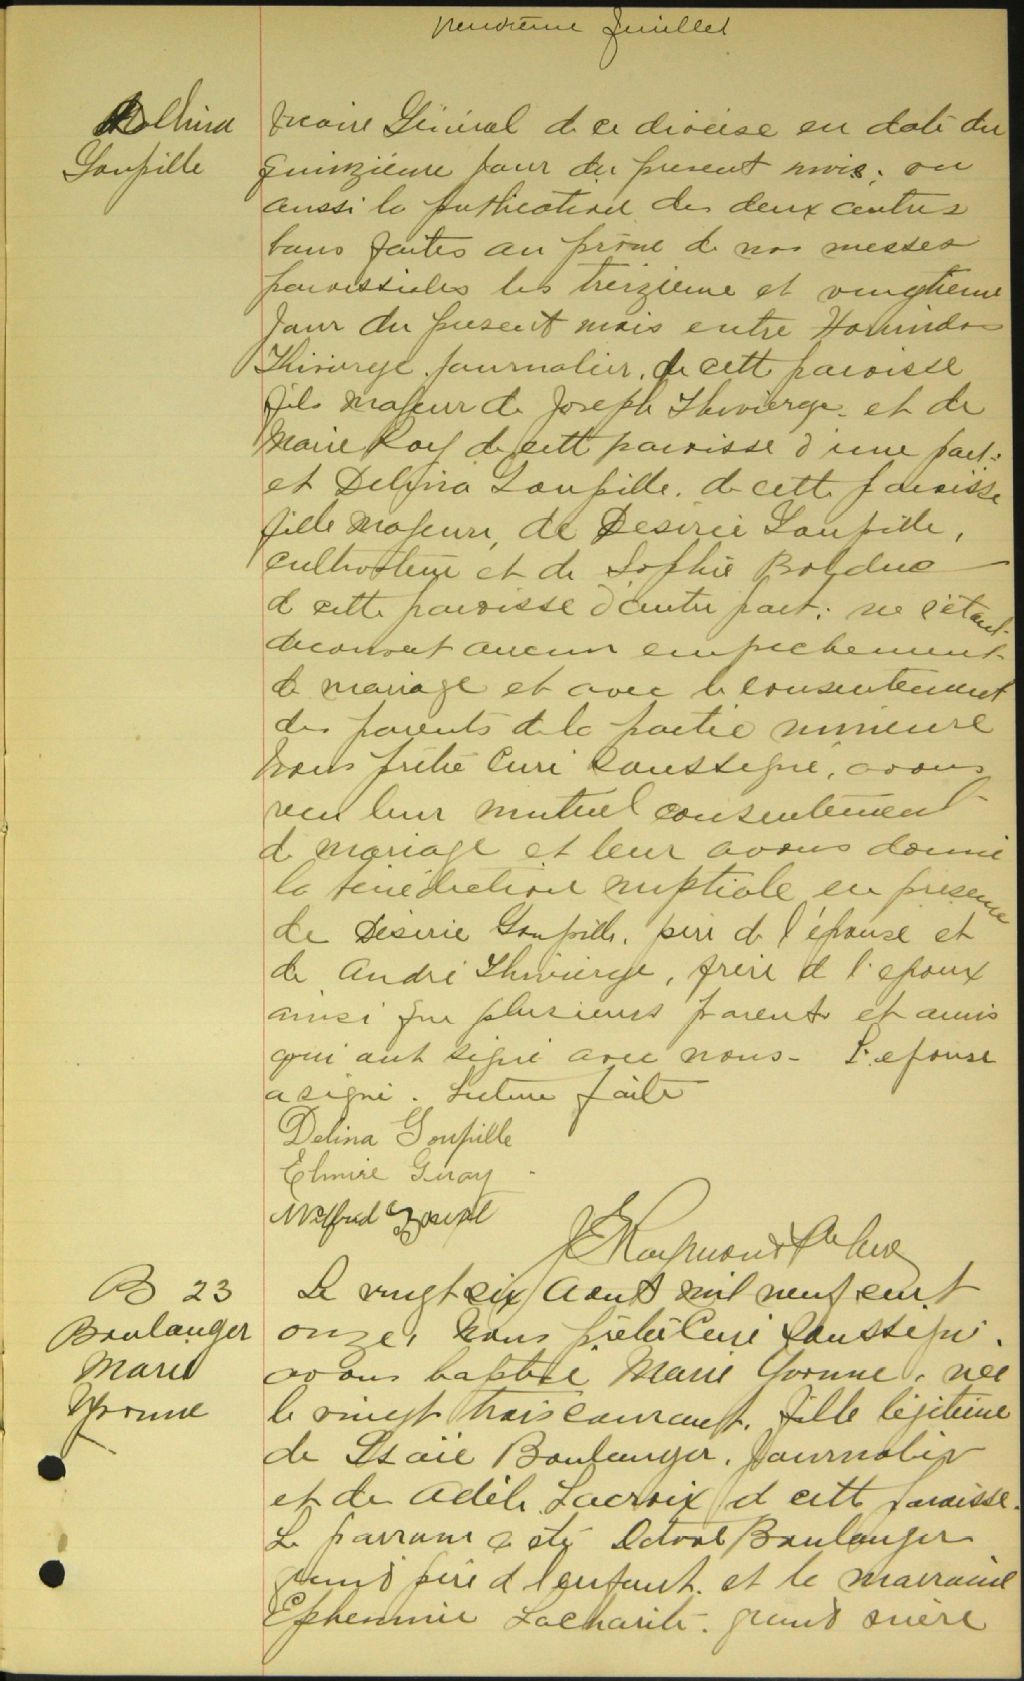 neuvième feuillet
Delvina
Goupille
Vicaire Général de ce diocèse en date du
quinzième jour du present mois; vu
aussi la publication des deux autres
bans faites au prône de nos messes
paroissiales les treizième et vingtième
jour du present mois entre Hormidas
Thivierge journalier, de cette paroisse
fils majeur de Joseph Thivierge et de
Marie Roy de cette paroisse d'une part:
et Delvina Goupille. de cette paroisse
fille majeure, de Desiré Goupille,
cultivateur et de Sophie Bolduc
de cette paroisse d'autre part: ne s'étant
decouvert aucun empechement
de mariage et avec le consentement
des parents de la partie mineure
Nous prêtre Curé Soussigné, avons
reçu leur mutuel consentement
de mariage et leur avons donné
la bénédiction nuptiale en presence
de Désiré Goupille, père de l'épouse et
de André Thivierge, frère de l'epoux
ainsi que plusieurs parents et amis
qui ont signé avec nous. L'epouse
a signé. Lecture faite
Delina Goupille
Elmire Giray
Wilfrid
J E Raymond Ptre Curé
B 23
Boulanger
Marie
Yvonne
Le vingt six Aout mil neuf cent
onze, Nous prêtre Curé Soussigné,
avons baptisé Marie Yvonne, née
le vingt trois courant, fille légitime
de Isaïe Boulanger, Journalier
et de Adèle Lacroix de cette paroisse.
Le parrain a été Boulanger
grand père de l'enfant. et la marraine
Ephemie Lacharité. grand mère